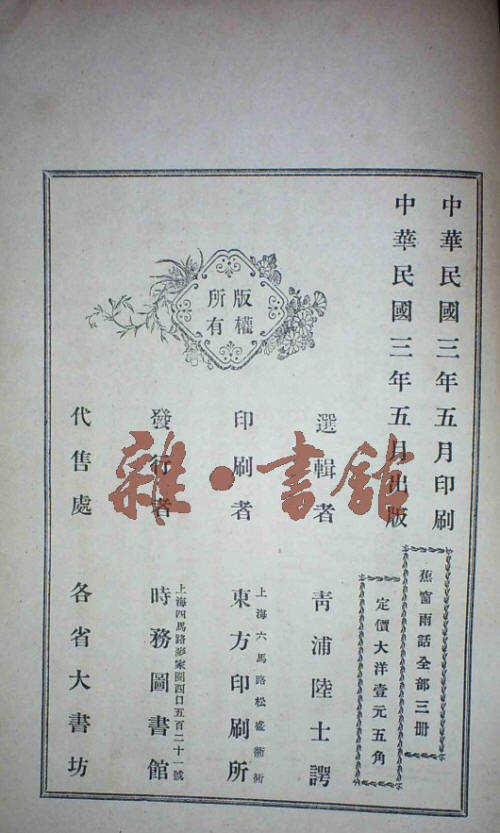 中華民國三年五月印刷
中華民國三年五月出版
蕉窗雨話全部三冊
定價大洋壹元五角
版權
所有
選輯者 靑浦陸士諤
印刷者 上海六馬路松盛衖衖 東方印刷所
發行者 上海四馬路彭家園西口五百二十一號 時務圖書館
代售處 各省大書坊
雜·書館